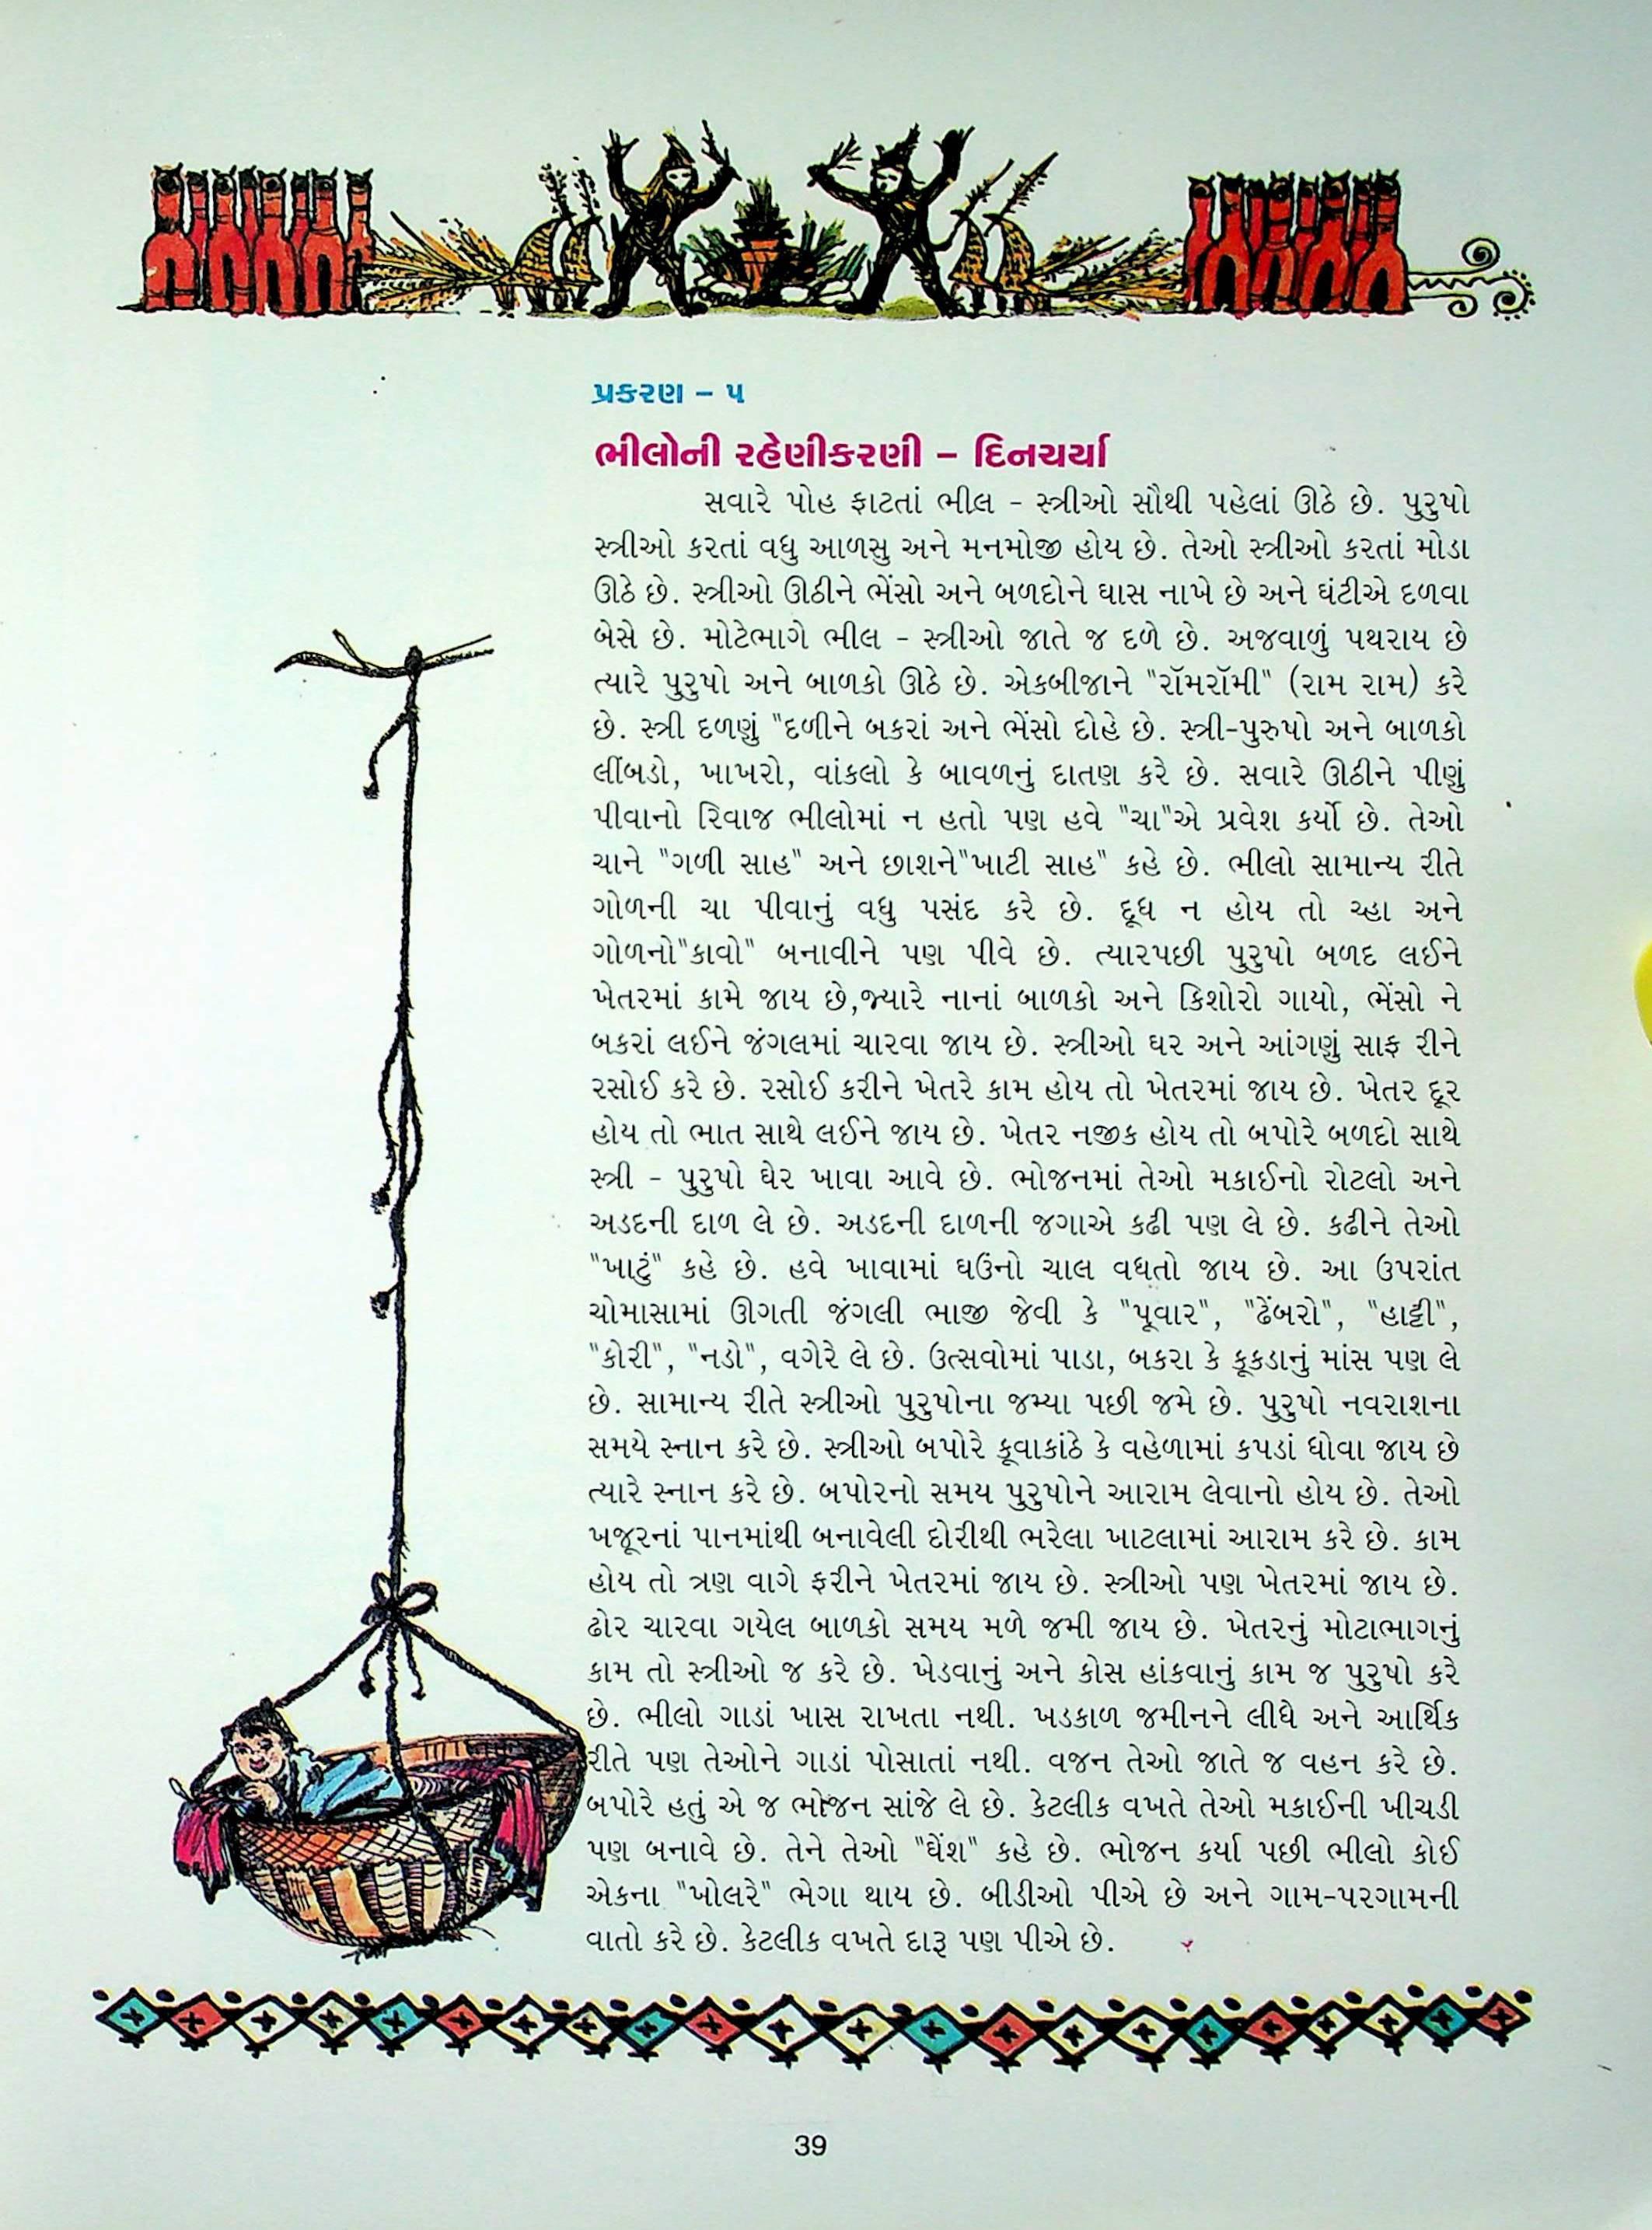 પ્રકરણ – ૫
ભીલોની રહેણીકરણી – દિનચર્યા
સવારે પોહ ફાટતાં ભીલ - સ્ત્રીઓ સૌથી પહેલાં ઊઠે છે. પુરુષો
સ્ત્રીઓ કરતાં વધુ આળસુ અને મનમોજી હોય છે. તેઓ સ્ત્રીઓ કરતાં મોડા
ઊઠે છે. સ્ત્રીઓ ઊઠીને ભેંસો અને બળદોને ઘાસ નાખે છે અને ઘંટીએ દળવા
બેસે છે. મોટેભાગે ભીલ - સ્ત્રીઓ જાતે જ દળે છે. અજવાળું પથરાય છે
ત્યારે પુરુષો અને બાળકો ઊઠે છે. એકબીજાને "રૉમરૉમી" (રામ રામ) કરે
છે. સ્ત્રી દળણું "દળીને બકરાં અને ભેંસો દોહે છે. સ્ત્રી-પુરુષો અને બાળકો
લીંબડો, ખાખરો, વાંકલો કે બાવળનું દાતણ કરે છે. સવારે ઊઠીને પીણું
પીવાનો રિવાજ ભીલોમાં ન હતો પણ હવે "ચા"એ પ્રવેશ કર્યો છે. તેઓ
ચાને "ગળી સાહ" અને છાશને"ખાટી સાહ" કહે છે. ભીલો સામાન્ય રીતે
ગોળની ચા પીવાનું વધુ પસંદ કરે છે. દૂધ ન હોય તો ચ્હા અને
ગોળનો"કાવો" બનાવીને પણ પીવે છે. ત્યારપછી પુરુષો બળદ લઈને
ખેતરમાં કામે જાય છે,જ્યારે નાનાં બાળકો અને કિશોરો ગાયો, ભેંસો ને
બકરાં લઈને જંગલમાં ચારવા જાય છે. સ્ત્રીઓ ઘર અને આંગણું સાફ રીને
રસોઈ કરે છે. રસોઈ કરીને ખેતરે કામ હોય તો ખેતરમાં જાય છે. ખેતર દૂર
હોય તો ભાત સાથે લઈને જાય છે. ખેતર નજીક હોય તો બપોરે બળદો સાથે
સ્ત્રી - પુરુષો ઘેર ખાવા આવે છે. ભોજનમાં તેઓ મકાઈનો રોટલો અને
અડદની દાળ લે છે. અડદની દાળની જગાએ કઢી પણ લે છે. કઢીને તેઓ
"ખાટું" કહે છે. હવે ખાવામાં ઘઉંનો ચાલ વધતો જાય છે. આ ઉપરાંત
ચોમાસામાં ઊગતી જંગલી ભાજી જેવી કે "પૂવાર", "ઢેંબરો", "હાટ્ટી",
"કોરી", "નડો", વગેરે લે છે. ઉત્સવોમાં પાડા, બકરા કે કૂકડાનું માંસ પણ લે
છે. સામાન્ય રીતે સ્ત્રીઓ પુરુષોના જમ્યા પછી જમે છે. પુરુષો નવરાશના
સમયે સ્નાન કરે છે. સ્ત્રીઓ બપોરે કૂવાકાંઠે કે વહેળામાં કપડાં ધોવા જાય છે
ત્યારે સ્નાન કરે છે. બપોરનો સમય પુરુષોને આરામ લેવાનો હોય છે. તેઓ
ખજૂરનાં પાનમાંથી બનાવેલી દોરીથી ભરેલા ખાટલામાં આરામ કરે છે. કામ
હોય તો ત્રણ વાગે ફરીને ખેતરમાં જાય છે. સ્ત્રીઓ પણ ખેતરમાં જાય છે.
ઢોર ચારવા ગયેલ બાળકો સમય મળે જમી જાય છે. ખેતરનું મોટાભાગનું
કામ તો સ્ત્રીઓ જ કરે છે. ખેડવાનું અને કોસ હાંકવાનું કામ જ પુરુષો કરે
છે. ભીલો ગાડાં ખાસ રાખતા નથી. ખડકાળ જમીનને લીધે અને આર્થિક
રીતે પણ તેઓને ગાડાં પોસાતાં નથી. વજન તેઓ જાતે જ વહન કરે છે.
બપોરે હતું એ જ ભોજન સાંજે લે છે. કેટલીક વખતે તેઓ મકાઈની ખીચડી
પણ બનાવે છે. તેને તેઓ "ઘેંશ" કહે છે. ભોજન કર્યા પછી ભીલો કોઈ
એકના "ખોલરે" ભેગા થાય છે. બીડીઓ પીએ છે અને ગામ-પરગામની
વાતો કરે છે. કેટલીક વખતે દારૂ પણ પીએ છે.
39